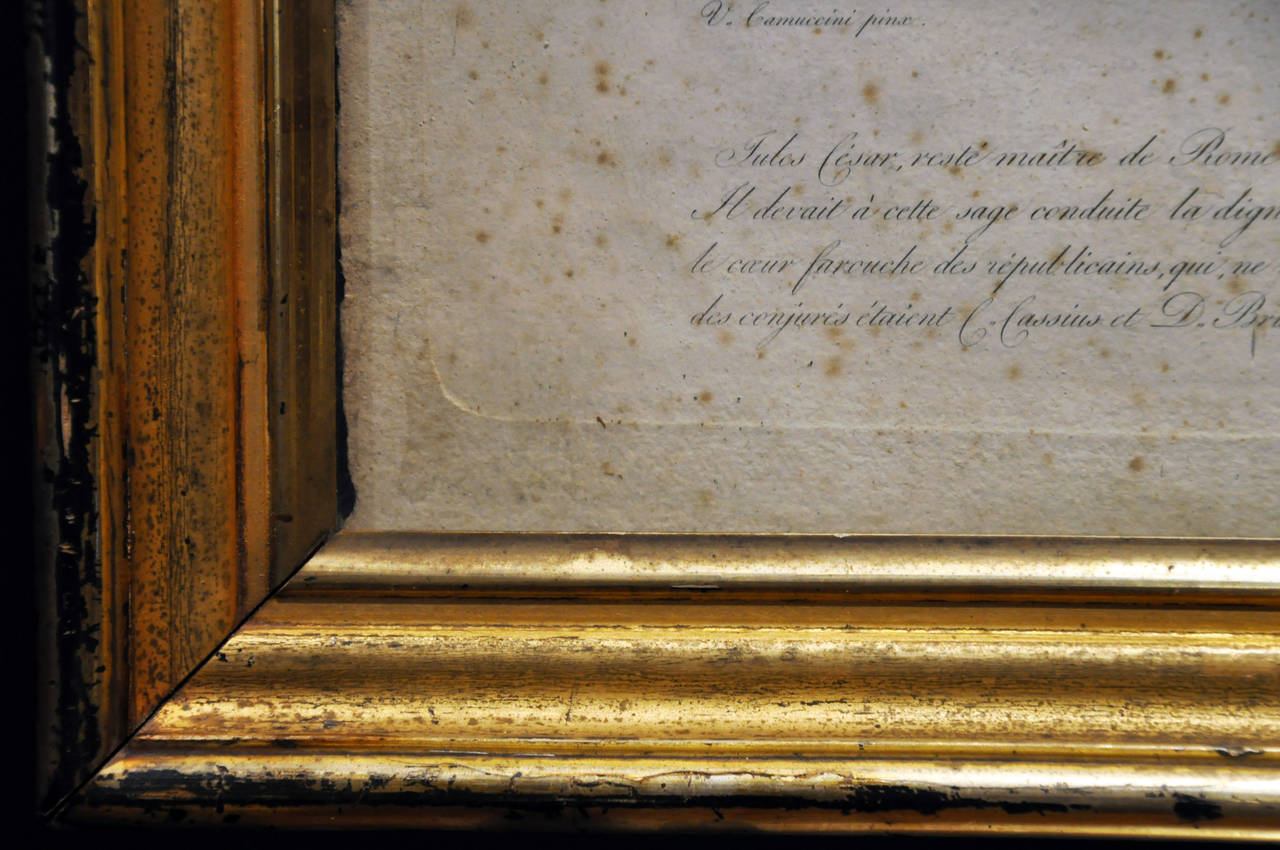 V. Camuccini pinx.
Jules César, resté maître de Rome
Il devait à cette sage conduite la dign
le cœur farouche des républicains, qui, ne
des conjurés étaient C. Cassius et D. Bru